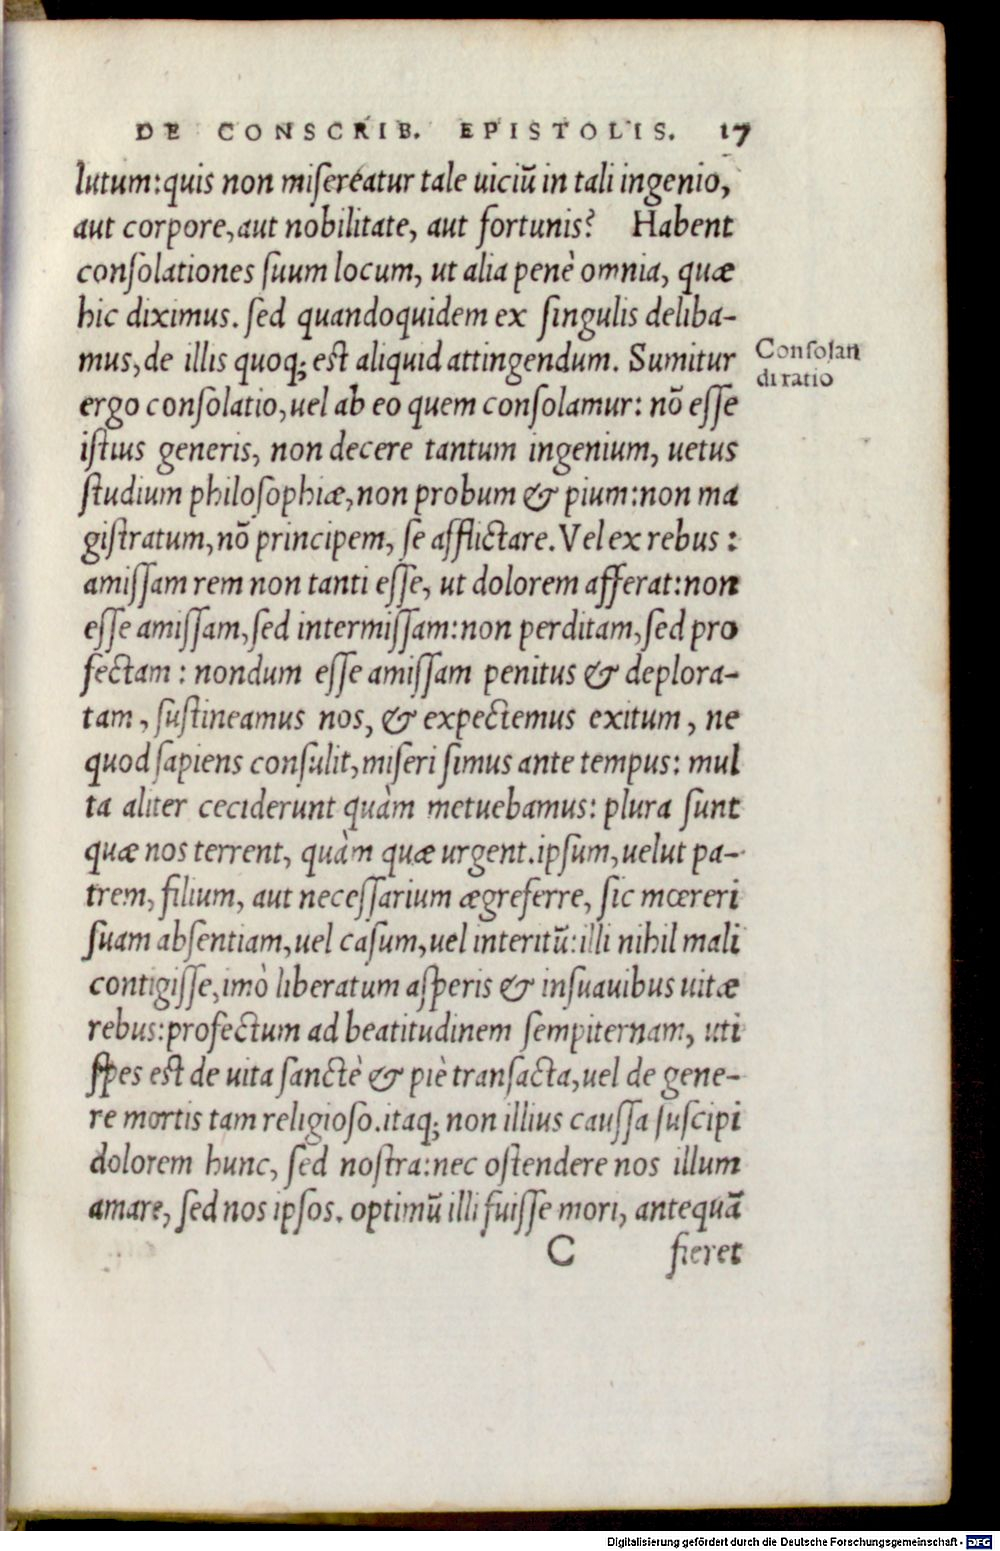 DE CONSCRIB. EPISTOLIS. 17
lutum:quis non misereatur tale uiciū in tali ingenio,
aut corpore, aut nobilitate, aut fortunis? Habent
consolationes suum locum, ut alia penè omnia, quæ
hic diximus. sed quandoquidem ex singulis deliba-
mus, de illis quoq; est aliquid attingendum. Sumitur
Consolan
di ratio
ergo consolatio, uel ab eo quem consolamur: nō esse
istius generis, non decere tantum ingenium, uetus
studium philosophiæ, non probum & pium:non ma
gistratum, nō principem, se afflictare. Vel ex rebus :
amissam rem non tanti esse, ut dolorem afferat:non
esse amissam, sed intermissam:non perditam, sed pro
fectam : nondum esse amissam penitus & deplora-
tam, sustineamus nos, & expectemus exitum, ne
quod sapiens consulit, miseri simus ante tempus: mul
ta aliter ceciderunt quàm metuebamus: plura sunt
quæ nos terrent, quàm quæ urgent. ipsum, uelut pa-
trem, filium, aut necessarium ægreferre, sic mœreri
suam absentiam, uel casum, uel interitū: illi nihil mali
contigisse, imò liberatum asperis & insuauibus uitæ
rebus:profectum ad beatitudinem sempiternam, uti
spes est de uita sanctè & piè transacta, uel de gene-
re mortis tam religioso. itaq; non illius caussa suscipi
dolorem hunc, sed nostra:nec ostendere nos illum
amare, sed nos ipsos. optimū illi fuisse mori, antequā
C fieret
Digitalisierung gefördert durch die Deutsche Forschungsgemeinschaft - DFG